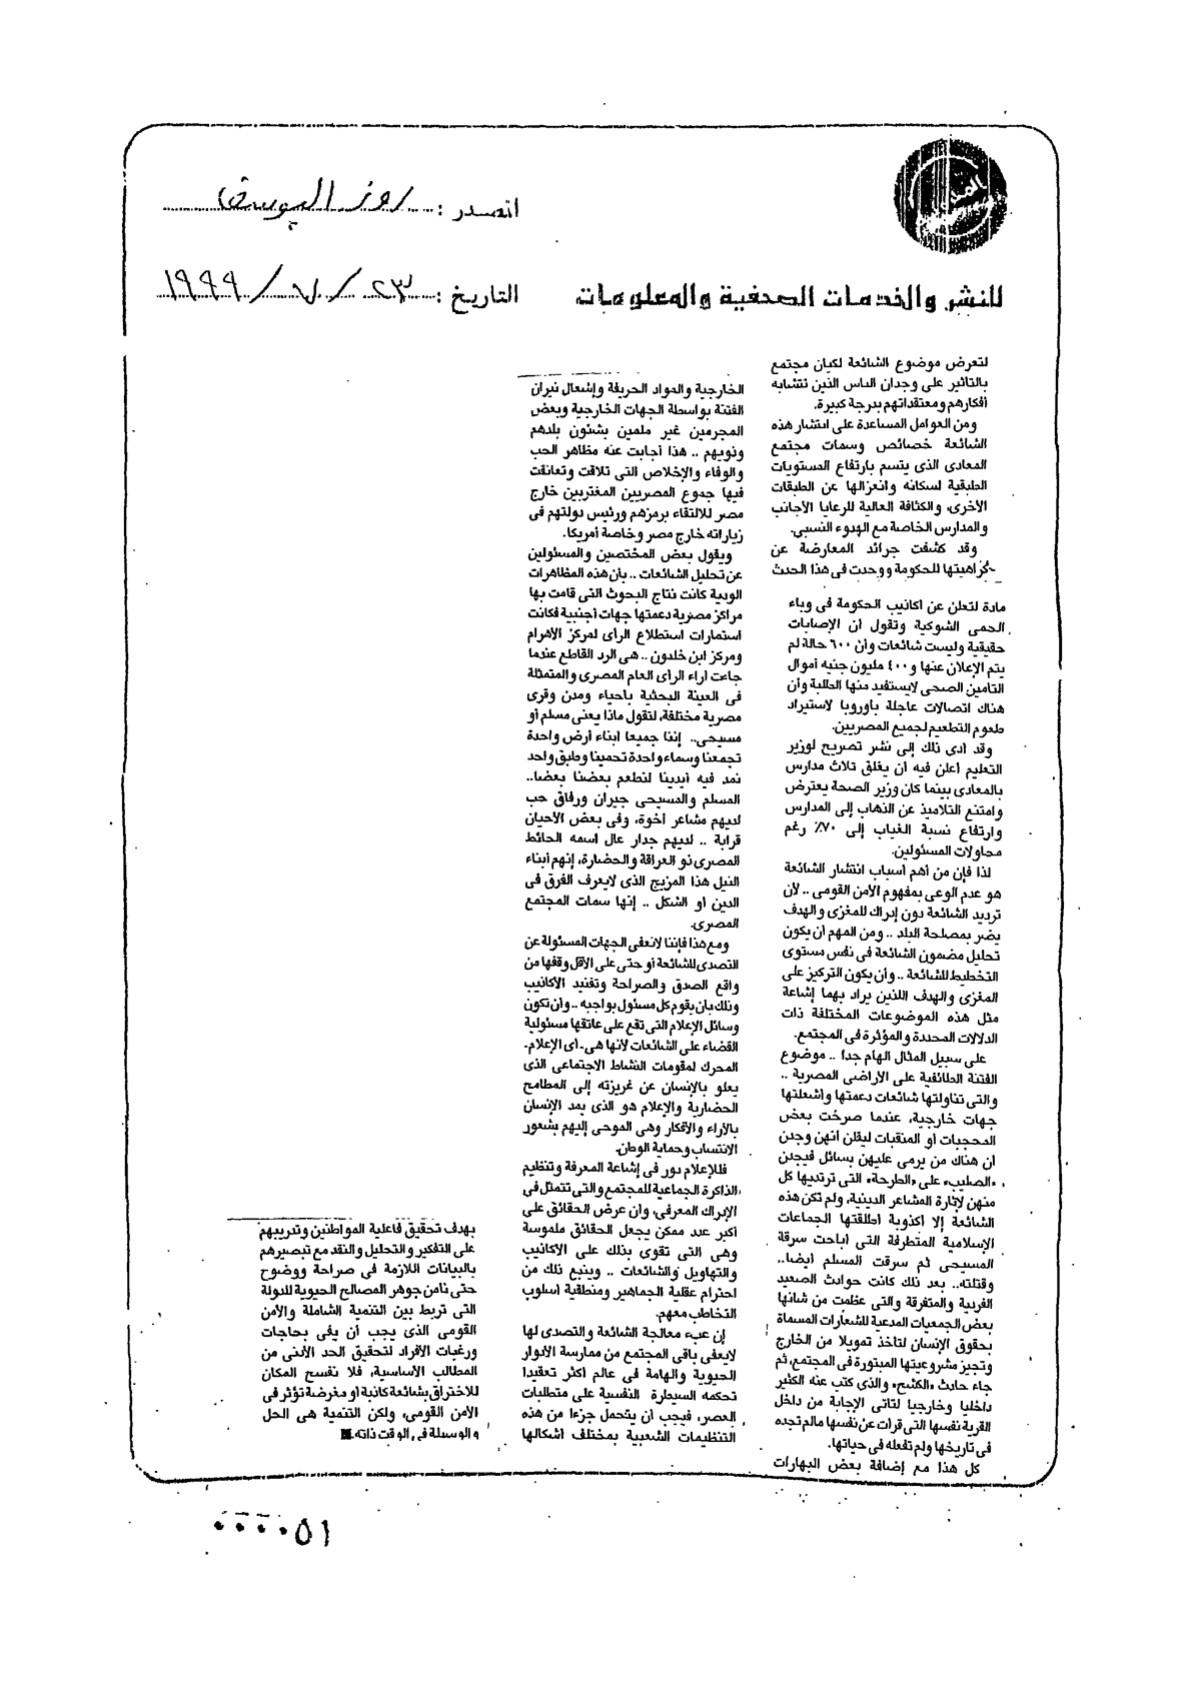 المصدر : روز اليوسف
للنشر والخدمات الصحفية والمعلومات
التاريخ : ٢٣ / ٧ / ١٩٩٩
لتعرض موضوع الشائعة لكيان مجتمع
بالتأثير على وجدان الناس الذين تتشابه
أفكارهم ومعتقداتهم بدرجة كبيرة.
ومن العوامل المساعدة على انتشار هذه
الشائعة خصائص وسمات مجتمع
المعادى الذى يتسم بارتفاع المستويات
الطبقية لسكانه وانعزالها عن الطبقات
الأخرى، والكثافة العالية للرعايا الأجانب
والمدارس الخاصة مع الهدوء النسبى.
وقد كشفت جرائد المعارضة عن
كراهيتها للحكومة ووجدت فى هذا الحدث
مادة لتعلن عن أكاذيب الحكومة فى وباء
الحمى الشوكية وتقول أن الإصابات
حقيقية وليست شائعات وأن ٦٠٠ حالة لم
يتم الإعلان عنها و٤٠٠ مليون جنيه أموال
التأمين الصحى لايستفيد منها الطلبة وأن
هناك اتصالات عاجلة بأوروبا لاستيراد
طعوم التطعيم لجميع المصريين.
وقد أدى ذلك إلى نشر تصريح لوزير
التعليم أعلن فيه أن يغلق ثلاث مدارس
بالمعادى بينما كان وزير الصحة يعترض
وامتنع التلاميذ عن الذهاب إلى المدارس
وارتفاع نسبة الغياب إلى ٧٠٪ رغم
محاولات المسئولين.
لذا فإن من أهم أسباب انتشار الشائعة
هو عدم الوعى بمفهوم الأمن القومى .. لأن
ترديد الشائعة دون إدراك للمغزى والهدف
يضر بمصلحة البلد .. ومن المهم أن يكون
تحليل مضمون الشائعة فى نفس مستوى
التخطيط للشائعة .. وأن يكون التركيز على
المغزى والهدف اللذين يراد بهما إشاعة
مثل هذه الموضوعات المختلفة ذات
الدلالات المحددة والمؤثرة فى المجتمع.
على سبيل المثال الهام جدا .. موضوع
الفتنة الطائفية على الأراضى المصرية ..
والتى تناولتها شائعات دعمتها وأشعلتها
جهات خارجية، عندما صرخت بعض
المحجبات أو المنقبات ليقلن أنهن وجدن
أن هناك من يرمى عليهن بسائل فيجدن
«الصليب» على «الطرحة» التى ترتديها كل
منهن لإثارة المشاعر الدينية، ولم تكن هذه
الشائعة إلا أكذوبة أطلقتها الجماعات
الإسلامية المتطرفة التى أباحت سرقة
المسيحى ثم سرقت المسلم أيضا..
وقتلته.. بعد ذلك كانت حوادث الصعيد
الغريبة والمتفرقة والتى عظمت من شأنها
بعض الجمعيات المدعية للشعارات المسماة
بحقوق الإنسان لتأخذ تمويلا من الخارج
وتجيز مشروعيتها المبتورة فى المجتمع، ثم
جاء حادث «الكشح» والذى كتب عنه الكثير
داخليا وخارجيا لتأتى الإجابة من داخل
القرية نفسها التى قرأت عن نفسها مالم تجده
فى تاريخها ولم تفعله فى حياتها.
كل هذا مع إضافة بعض البهارات
الخارجية والمواد الحريفة وإشعال نيران
الفتنة بواسطة الجهات الخارجية وبعض
المجرمين غير ملمين بشئون بلدهم
وذويهم .. هذا أجابت عنه مظاهر الحب
والوفاء والإخلاص التى تلاقت وتعانقت
فيها جموع المصريين المغتربين خارج
مصر للالتقاء برمزهم ورئيس دولتهم فى
زياراته خارج مصر وخاصة أمريكا.
ويقول بعض المختصين والمسئولين
عن تحليل الشائعات .. بأن هذه المظاهرات
الودية كانت نتاج البحوث التى قامت بها
مراكز مصرية دعمتها جهات أجنبية فكانت
استمارات استطلاع الرأى لمركز الأهرام
ومركز ابن خلدون .. هى الرد القاطع عندما
جاءت آراء الرأى العام المصرى والمتمثلة
فى العينة البحثية بأحياء ومدن وقرى
مصرية مختلفة، لتقول ماذا يعنى مسلم أو
مسيحى.. إننا جميعا أبناء أرض واحدة
تجمعنا وسماء واحدة تحمينا وطبق واحد
نمد فيه أيدينا لنطعم بعضنا بعضا..
المسلم والمسيحى جيران ورفاق حب
لديهم مشاعر أخوة، وفى بعض الأحيان
قرابة .. لديهم جدار عال اسمه الحائط
المصرى ذو العراقة والحضارة، إنهم أبناء
النيل هذا المزيج الذى لايعرف الفرق فى
الدين أو الشكل .. إنها سمات المجتمع
المصرى.
ومع هذا فإننا لانعفى الجهات المسئولة عن
التصدى للشائعة أو حتى على الأقل وقفها من
واقع الصدق والصراحة وتفنيد الأكاذيب
وذلك بأن يقوم كل مسئول بواجبه .. وأن تكون
وسائل الإعلام التى تقع على عاتقها مسئولية
القضاء على الشائعات لأنها هى.أى الإعلام.
المحرك لمقومات النشاط الاجتماعى الذى
يعلو بالإنسان عن غريزته إلى المطامح
الحضارية والإعلام هو الذى يمد الإنسان
بالآراء والأفكار وهى الموحى إليهم بشعور
الانتساب وحماية الوطن.
فللإعلام دور فى إشاعة المعرفة وتنظيم
الذاكرة الجماعية للمجتمع والتى تتمثل فى
الإدراك المعرفى، وأن عرض الحقائق على
أكبر عدد ممكن يجعل الحقائق ملموسة
وهى التى تقوى بذلك على الأكاذيب
والتهاويل والشائعات .. وينبع ذلك من
احترام عقلية الجماهير ومنطقية أسلوب
التخاطب معهم.
إن عبء معالجة الشائعة والتصدى لها
لايعفى باقى المجتمع من ممارسة الأدوار
الحيوية والهامة فى عالم أكثر تعقيدا
تحكمه السيطرة النفسية على متطلبات
العصر، فيجب أن يتحمل جزءا من هذه
التنظيمات الشعبية بمختلف أشكالها
بهدف تحقيق فاعلية المواطنين وتدريبهم
على التفكير والتحليل والنقد مع تبصيرهم
بالبيانات اللازمة فى صراحة ووضوح
حتى نأمن جوهر المصالح الحيوية للدولة
التى تربط بين التنمية الشاملة والأمن
القومى الذى يجب أن يفى بحاجات
ورغبات الأفراد لتحقيق الحد الأدنى من
المطالب الأساسية، فلا نفسح المكان
للاختراق بشائعة كاذبة أو مغرضة تؤثر فى
الأمن القومى، ولكن التنمية هى الحل
والوسيلة فى الوقت ذاته.
٠٠٠٠٥١